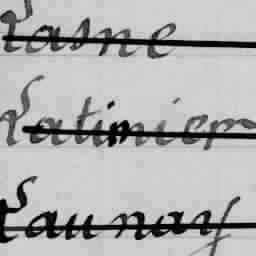 Lasne
Latimier
Launay